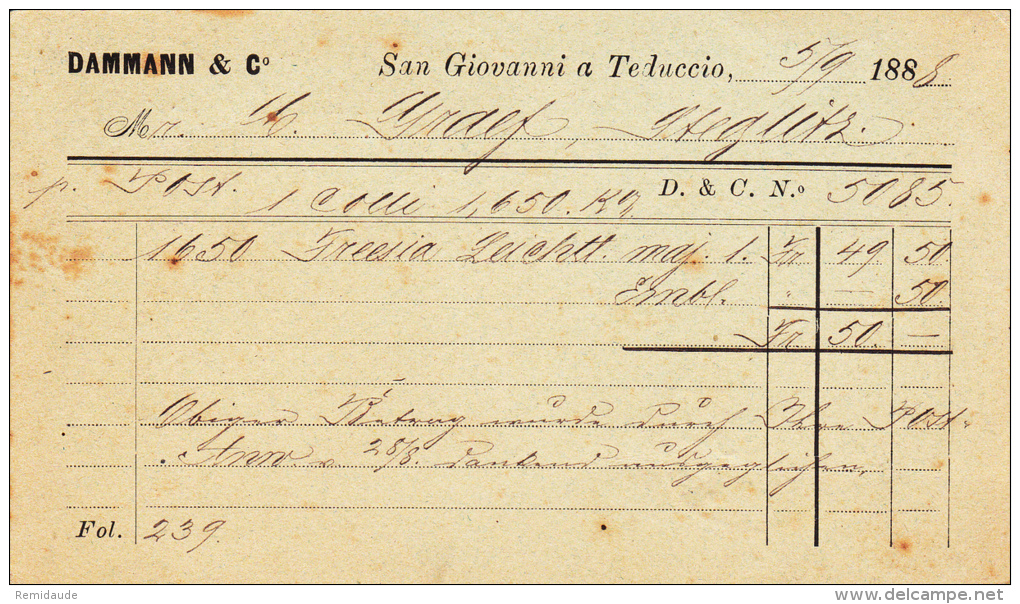 DAMMANN & Cº San Giovanni a Teduccio, 5/9 1888
Mr. Graef, Steglitz.
p. Post. 1 Colli 1,650. Kg. D. & C. N.º 5085.
1650 Freesia Leichtl. maj. 1. Fr 49 50
Embl. " — 50.
Fr 50. —
Obiger Betrag wurde durch Ihre Post-
Anw. v. 28/8. dankend ausgeglichen.
Fol. 239.
Remidaude
delcampe.net